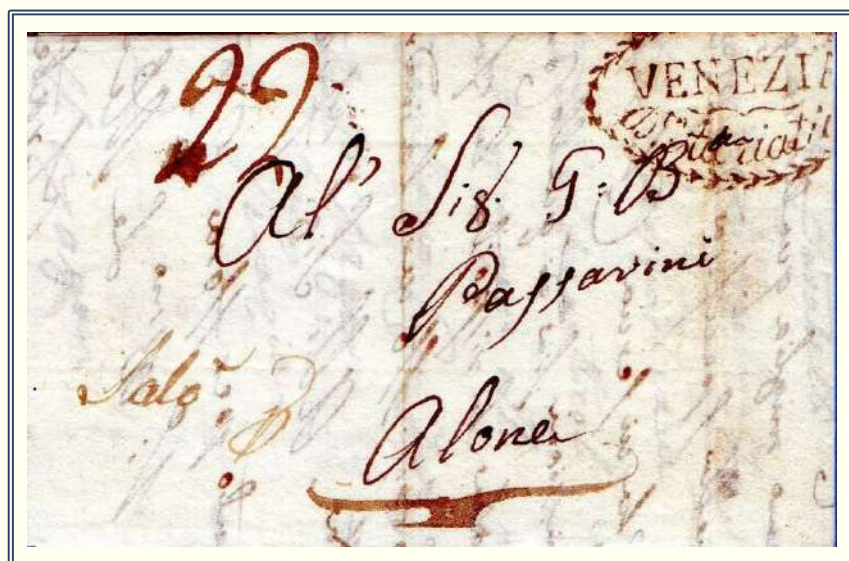 22
VENEZIA
Al' Sig. G: B
Passarini
Salò
Alone